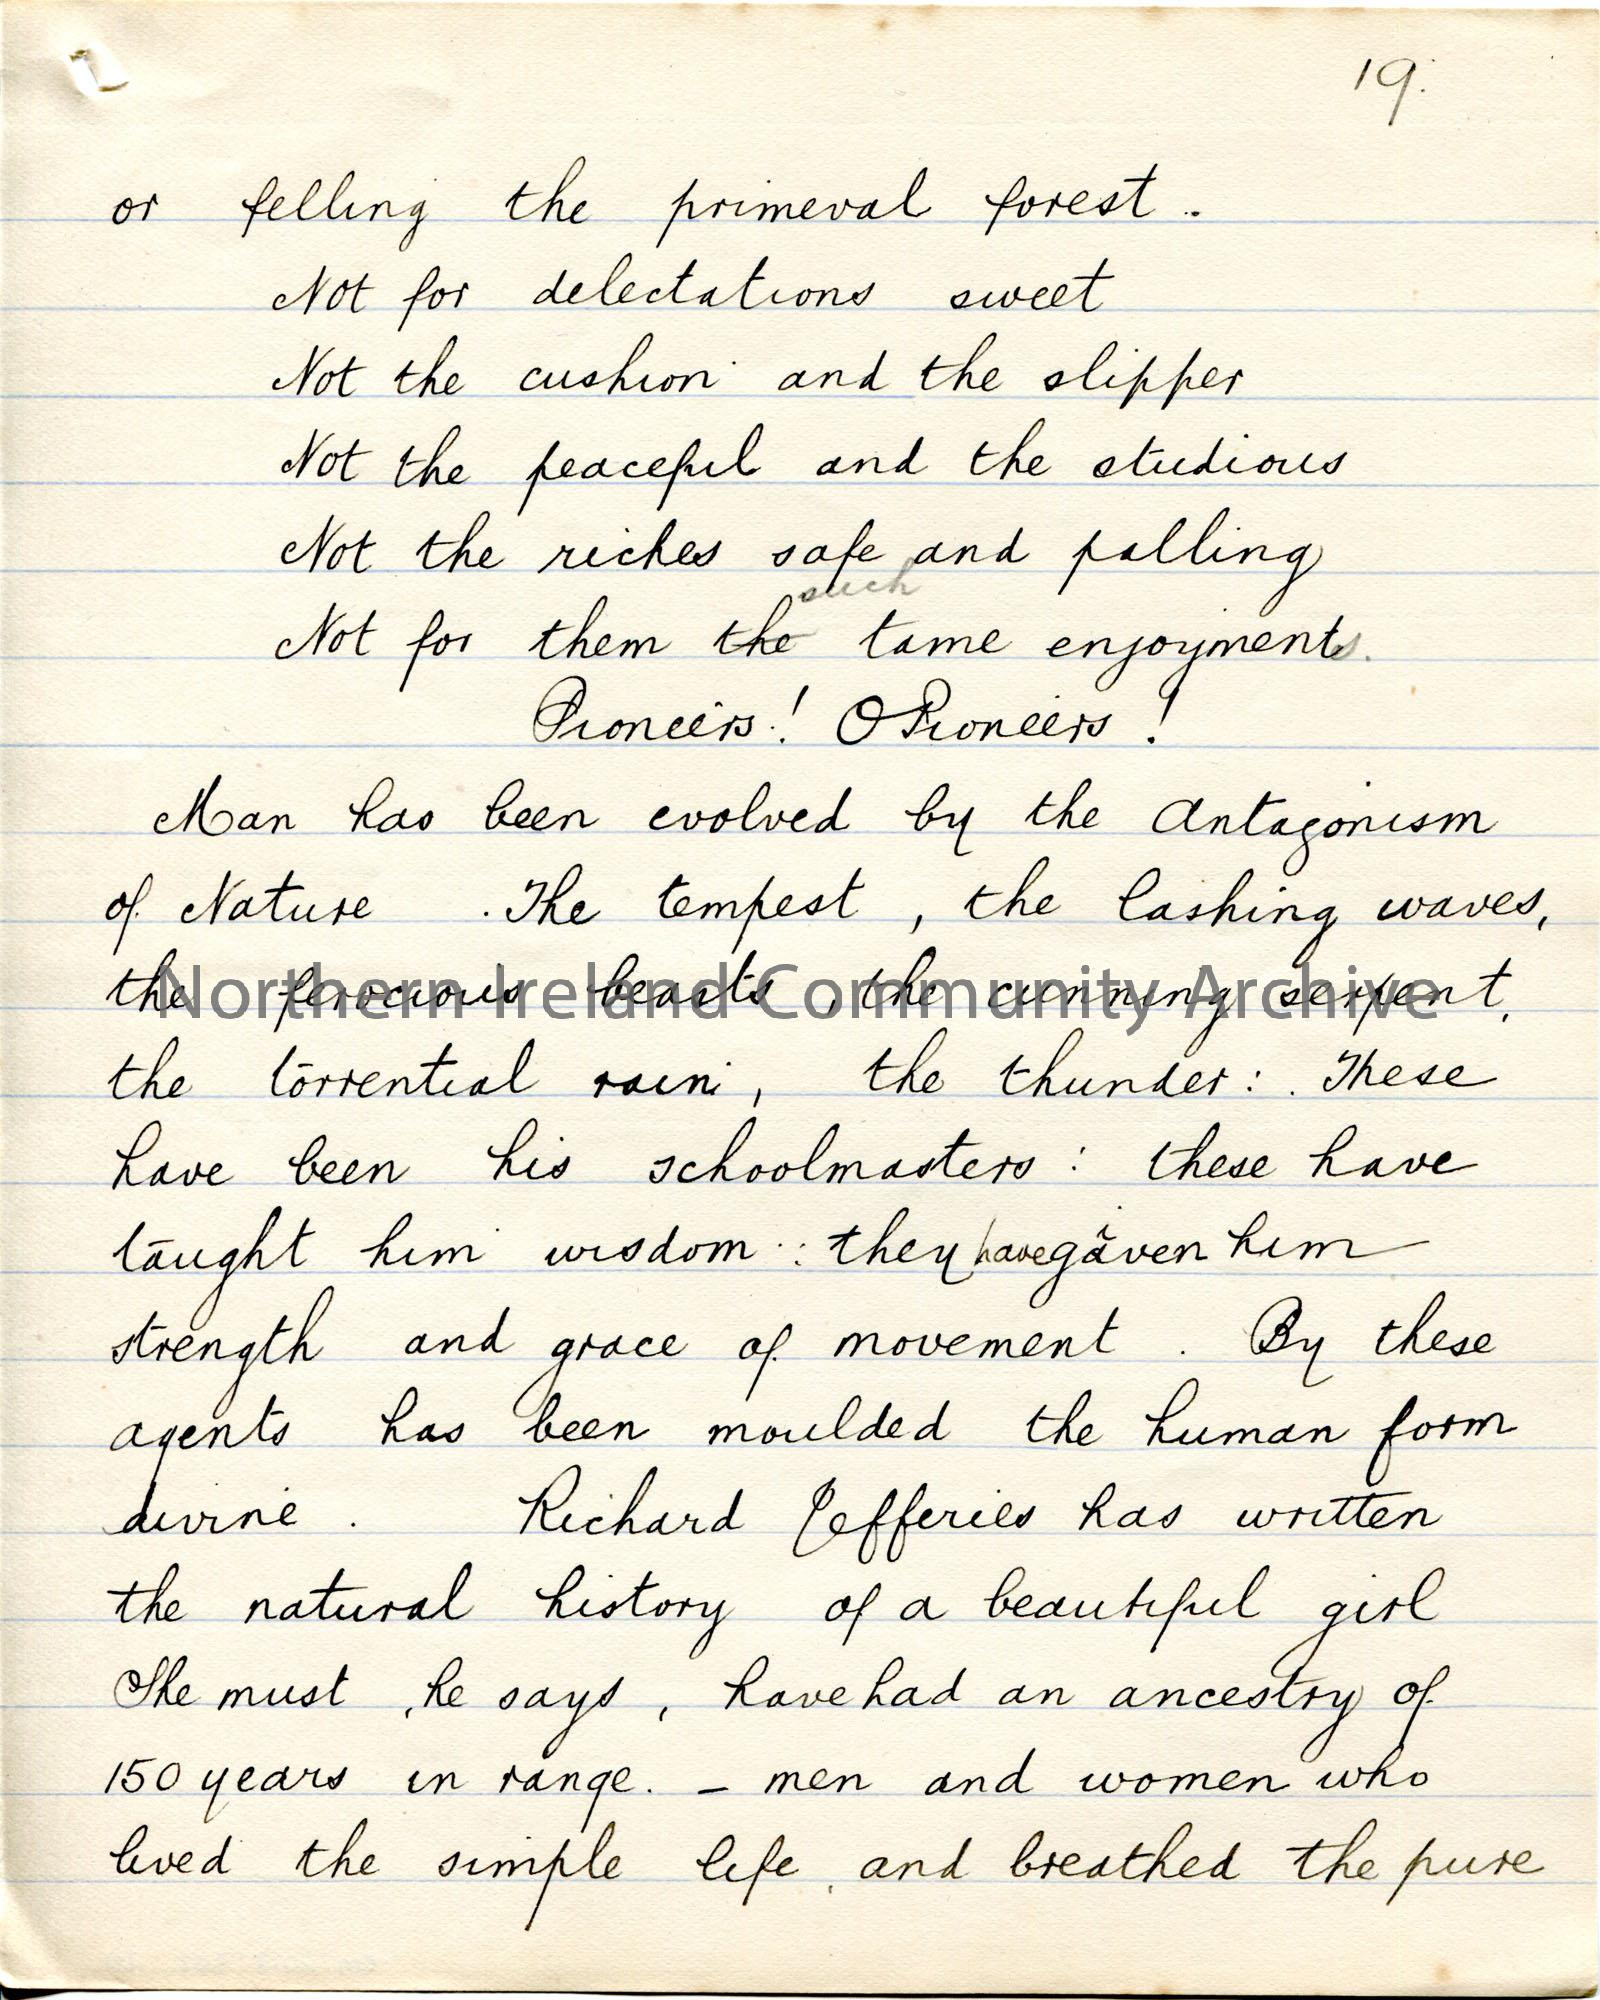 19.
or felling the primeval forest.
Not for delectations sweet
Not the cushion and the slipper
Not the peaceful and the studious
Not the riches safe and palling
such
Not for them the tame enjoyments.
Pioneers! O Pioneers!
Man has been evolved by the Antagonism
of Nature. The tempest, the lashing waves,
the ferocious beasts, the cunning serpent,
Northern Ireland Community Archive
the torrential rain, the thunder: These
have been his schoolmasters: these have
taught him wisdom: they have given him
strength and grace of movement. By these
agents has been moulded the human form
divine. Richard Jefferies has written
the natural history of a beautiful girl
She must, he says, have had an ancestry of
150 years in range. - men and women who
lived the simple life, and breathed the pure